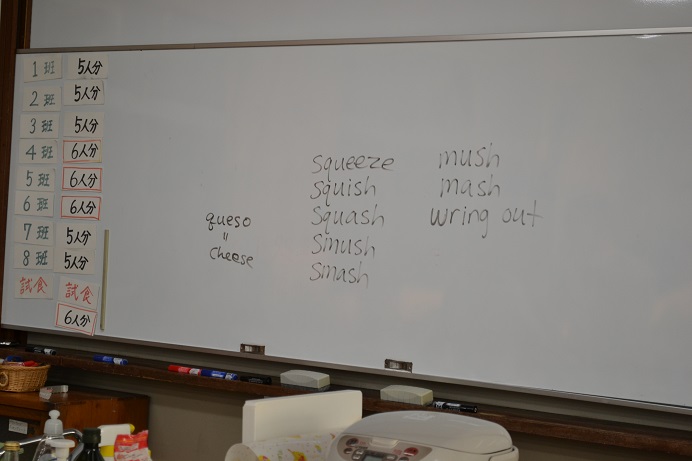 1班 5人分
2班 5人分
3班 5人分
4班 6人分
5班 6人分
6班 6人分
7班 5人分
8班 5人分
試食 試食
6人分
queso
=
cheese
squeeze
squish
squash
smush
smash
mush
mash
wring out